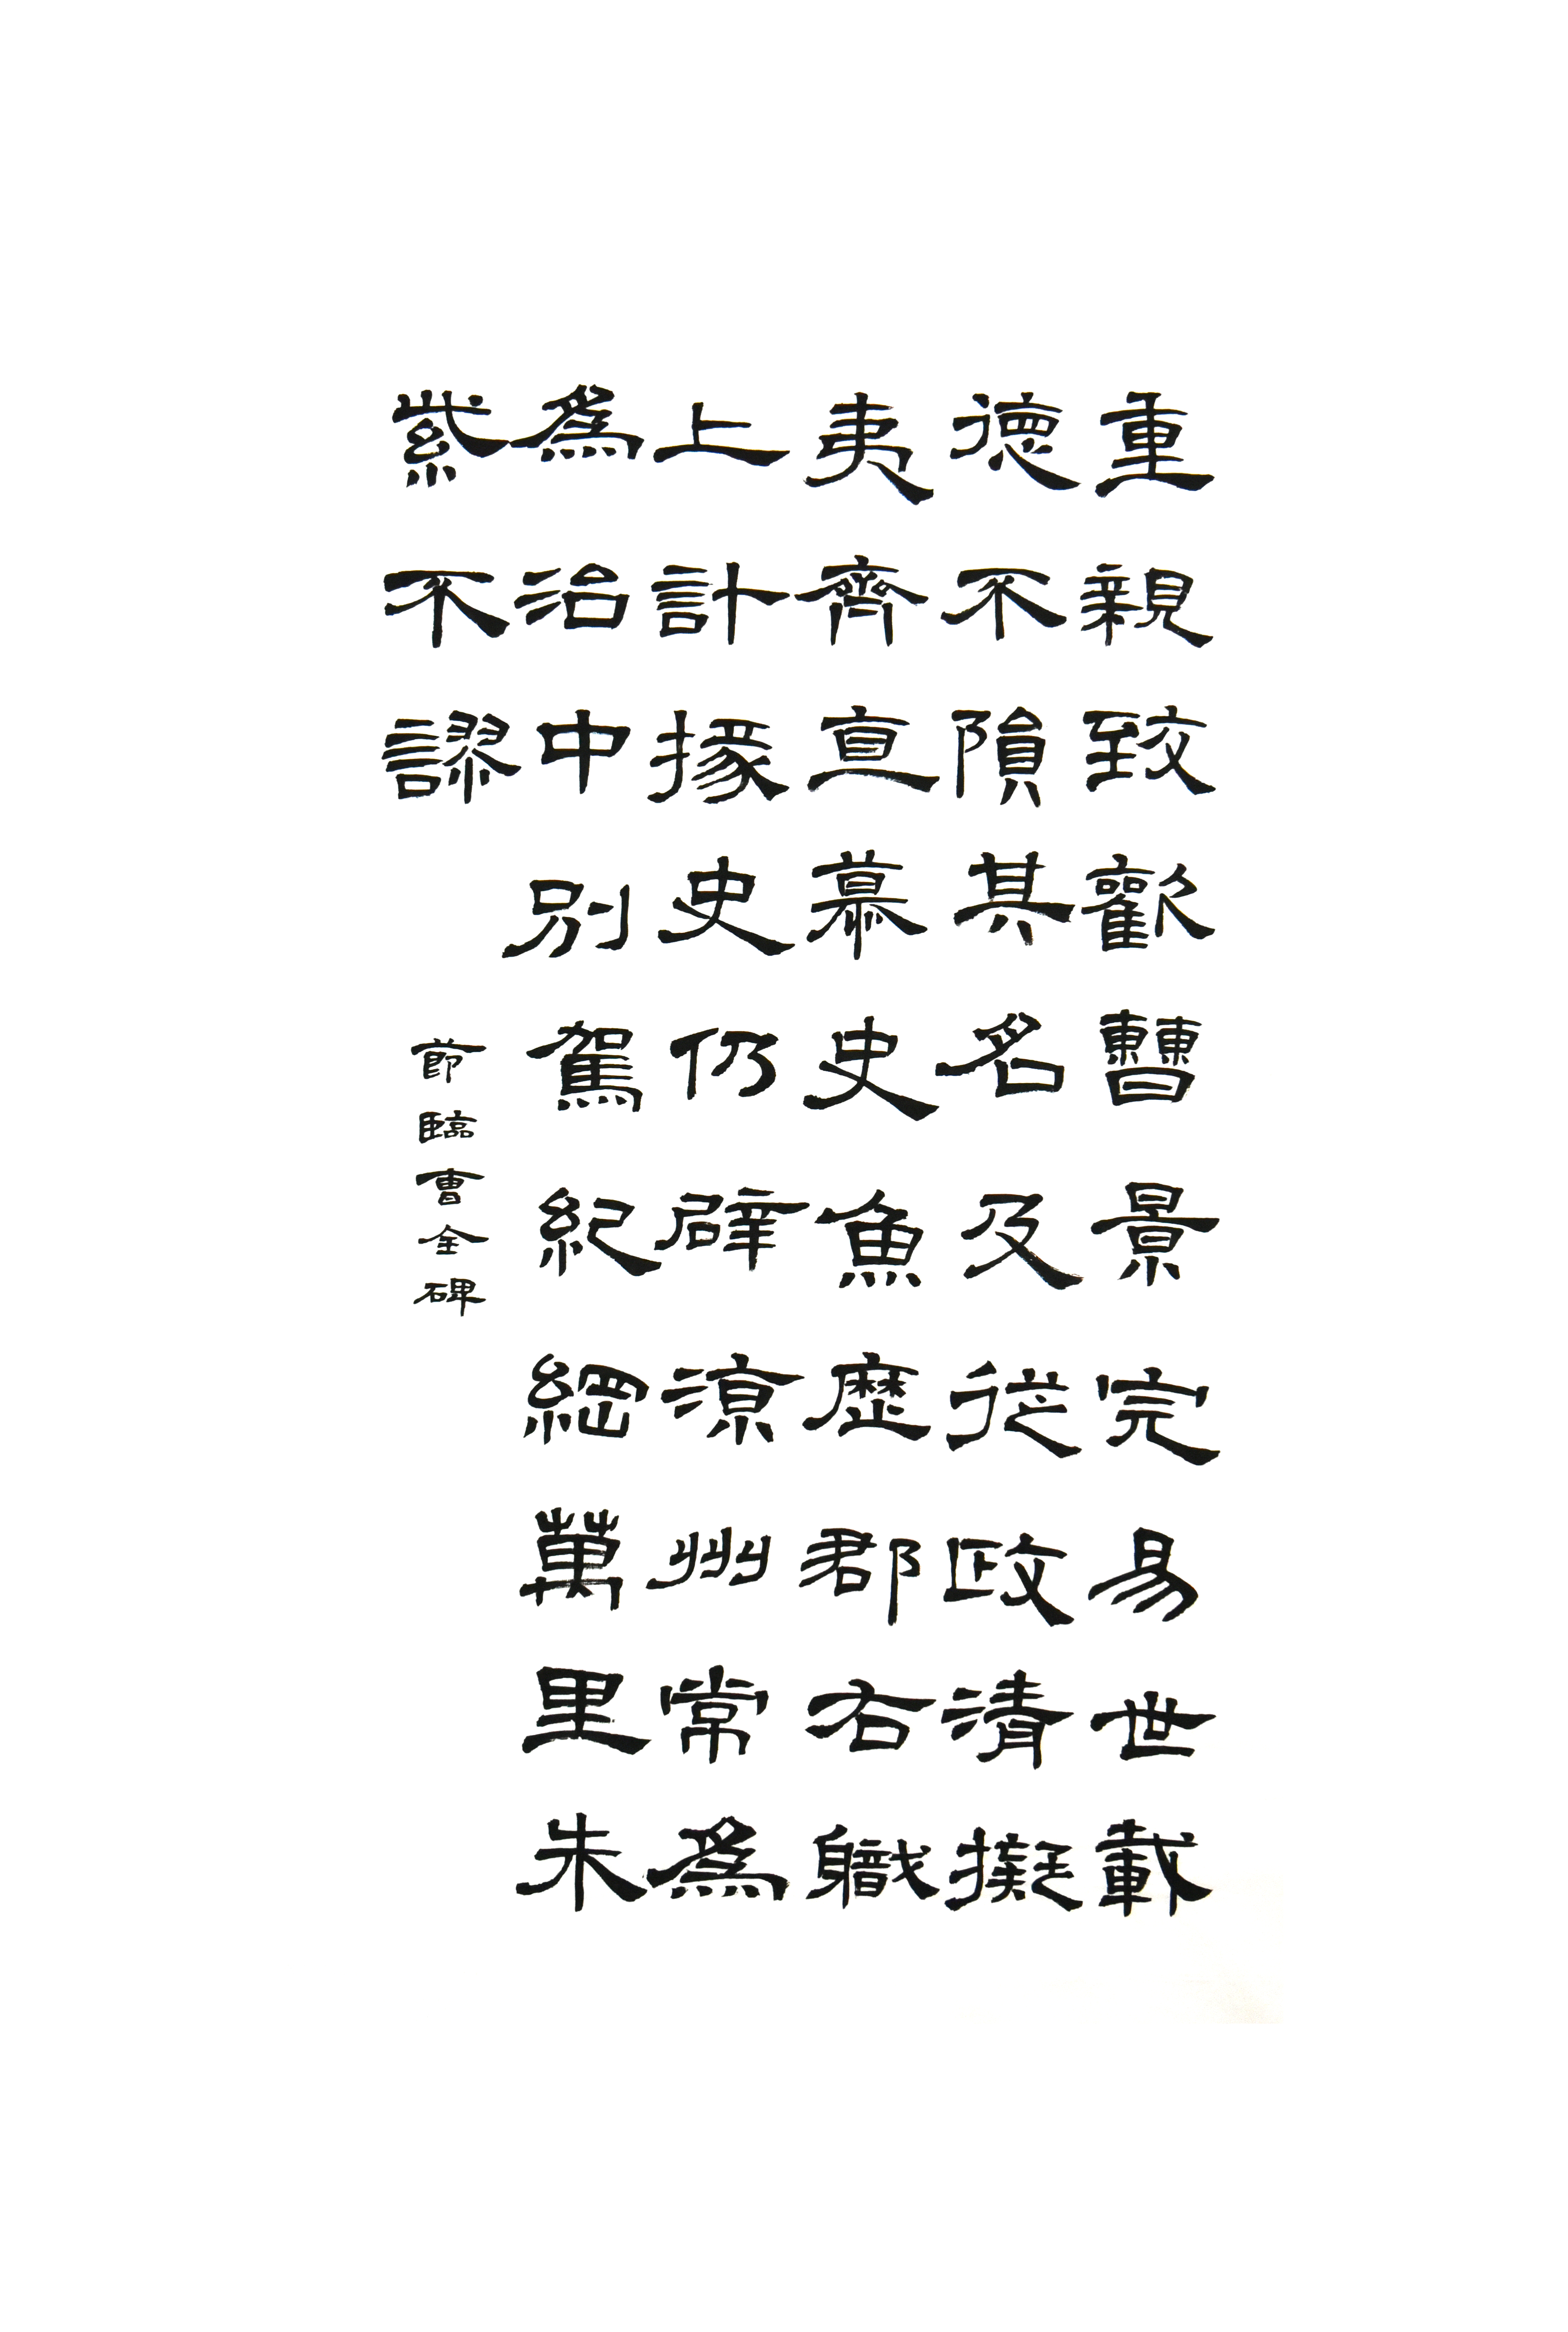 重親致歡曹景完易世載
德不隕其名及從政清擬
夷齊直慕史魚歷郡右職
上計掾史仍辟涼州常為
為治中別駕紀綱萬里朱
紫不謬
節臨曹全碑